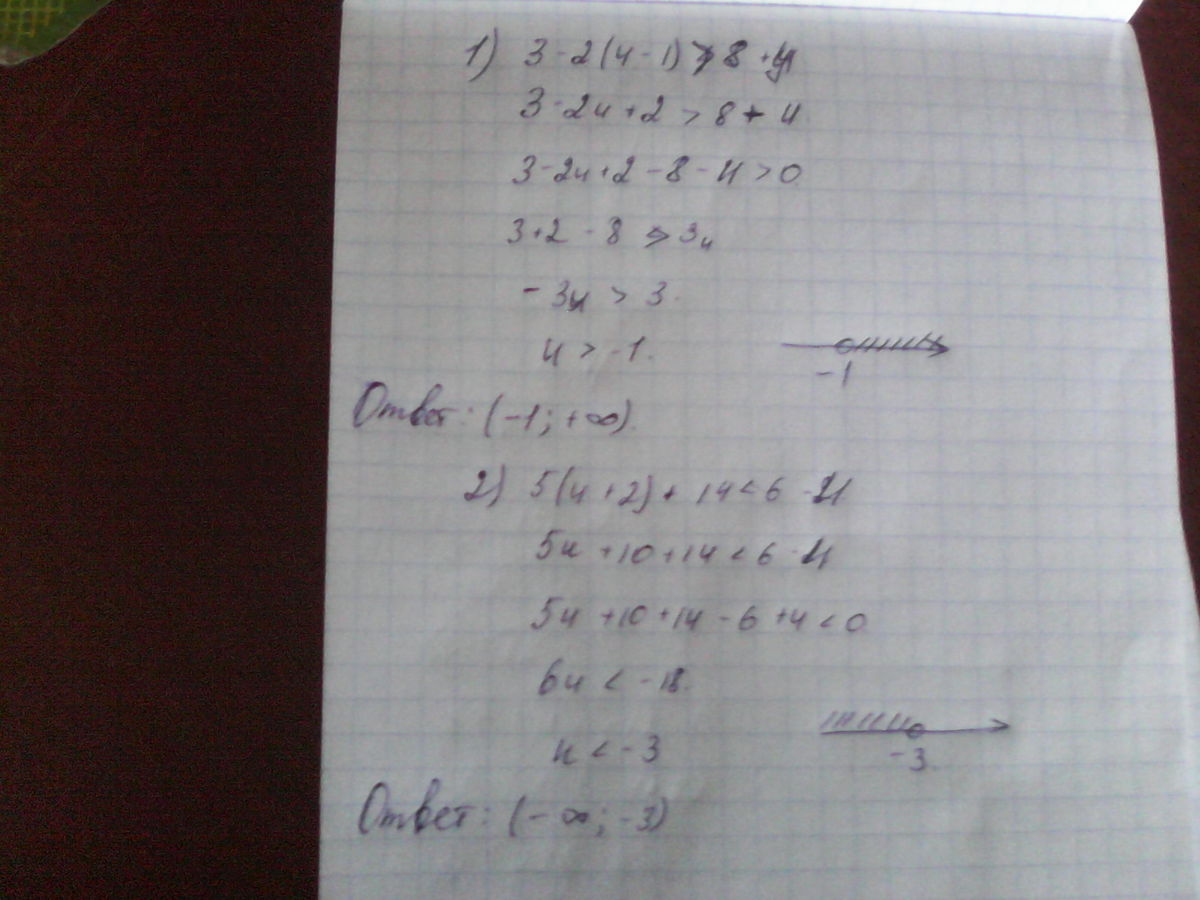 1) 3 - 2(y - 1) > 8 + y
3 - 2y + 2 > 8 + y
3 - 2y + 2 - 8 - y > 0
3 + 2 - 8 > 3y
- 3y > 3.
y > -1.
-1
Ответ: (-1; +∞).
2) 5(y + 2) + 14 < 6 - y
5y + 10 + 14 < 6 - y
5y + 10 + 14 - 6 + y < 0
6y < -18.
y < -3
-3.
Ответ: (-∞; -3)